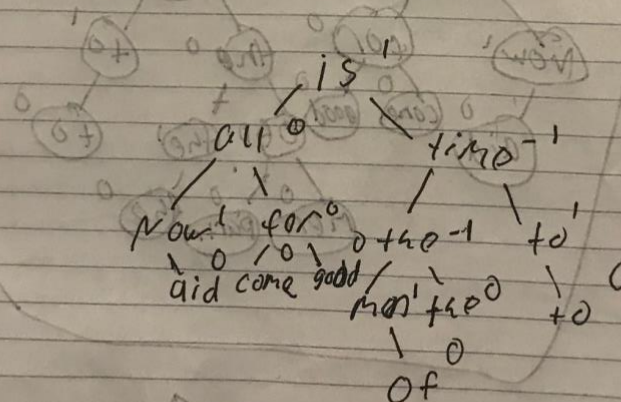 is 1
all 0 time -1
Now 1 for 0 the -1 to 1
aid 0 come 0 good 0 men 1 the 0 to 0
of 0